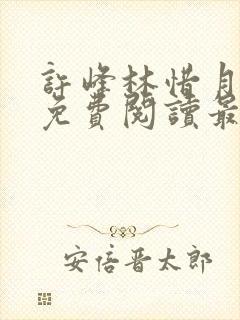 許峰林惜月
免費閱讀最
安倍晋太郎